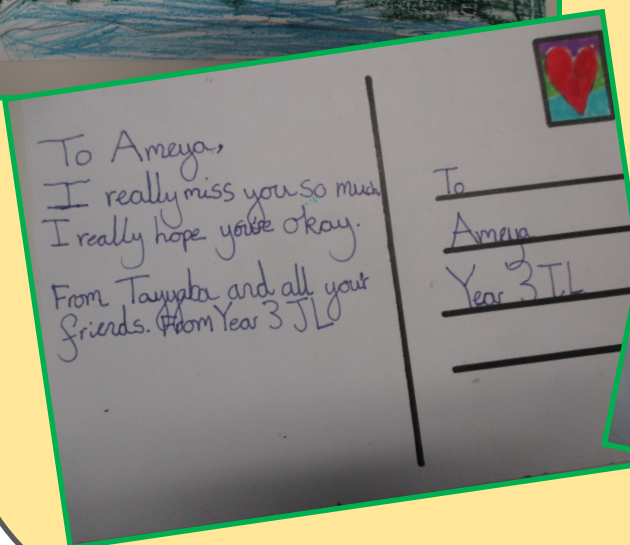 To Ameya,
I really miss you so much,
I really hope you're okay.
From Tayyaba and all your
friends. From Year 3 JL
To
Ameya
Year 3 JL